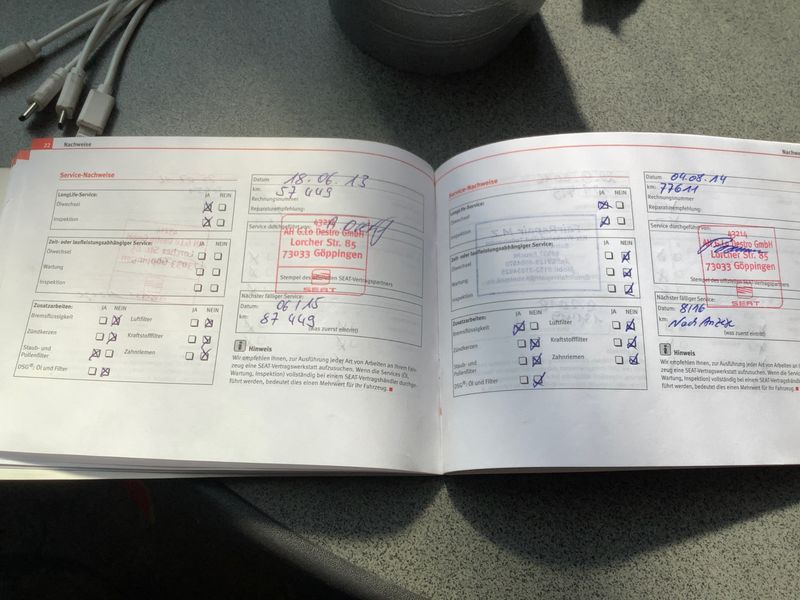 22 Nachweise
Service-Nachweise
LongLife-Service: JA NEIN
Ölwechsel
Inspektion
Zeit- oder laufleistungsabhängiger Service:
Ölwechsel
Wartung
Inspektion
Zusatzarbeiten: JA NEIN JA NEIN
Bremsflüssigkeit Luftfilter
Zündkerzen Kraftstofffilter
Staub- und
Pollenfilter Zahnriemen
DSG®: Öl und Filter
Datum 18.06.13
km: 57 449
Rechnungsnummer
Reparaturempfehlung:
Service durchgeführt von:
43214
AH G.Lo Destro GmbH
Lorcher Str. 85
73033 Göppingen
SEAT
Stempel des offiziellen SEAT-Vertragspartners
Nächster fälliger Service:
Datum: 06/15
km: 87 449
(was zuerst eintritt)
Hinweis
Wir empfehlen Ihnen, zur Ausführung jeder Art von Arbeiten an Ihrem Fahr-
zeug eine SEAT-Vertragswerkstatt aufzusuchen. Wenn die Services (Öl,
Wartung, Inspektion) vollständig bei einem SEAT-Vertragshändler durchge-
führt werden, bedeutet dies einen Mehrwert für Ihr Fahrzeug.
Service-Nachweise
LongLife-Service: JA NEIN
Ölwechsel
Inspektion
Zeit- oder laufleistungsabhängiger Service:
Ölwechsel
Wartung
Inspektion
Zusatzarbeiten: JA NEIN JA NEIN
Bremsflüssigkeit Luftfilter
Zündkerzen Kraftstofffilter
Staub- und
Pollenfilter Zahnriemen
DSG®: Öl und Filter
Datum 04.08.14
km: 77611
Rechnungsnummer
Reparaturempfehlung:
Service durchgeführt von:
43214
AH G.Lo Destro GmbH
Lorcher Str. 85
73033 Göppingen
SEAT
Stempel des offiziellen SEAT-Vertragspartners
Nächster fälliger Service:
Datum: 8/16
km: Nach Anzeige
(was zuerst eintritt)
Hinweis
Wir empfehlen Ihnen, zur Ausführung jeder Art von Arbeiten an
zeug eine SEAT-Vertragswerkstatt aufzusuchen. Wenn die
Wartung, Inspektion) vollständig bei einem SEAT-Vertragshändler
führt werden, bedeutet dies einen Mehrwert für Ihr Fahrzeug.